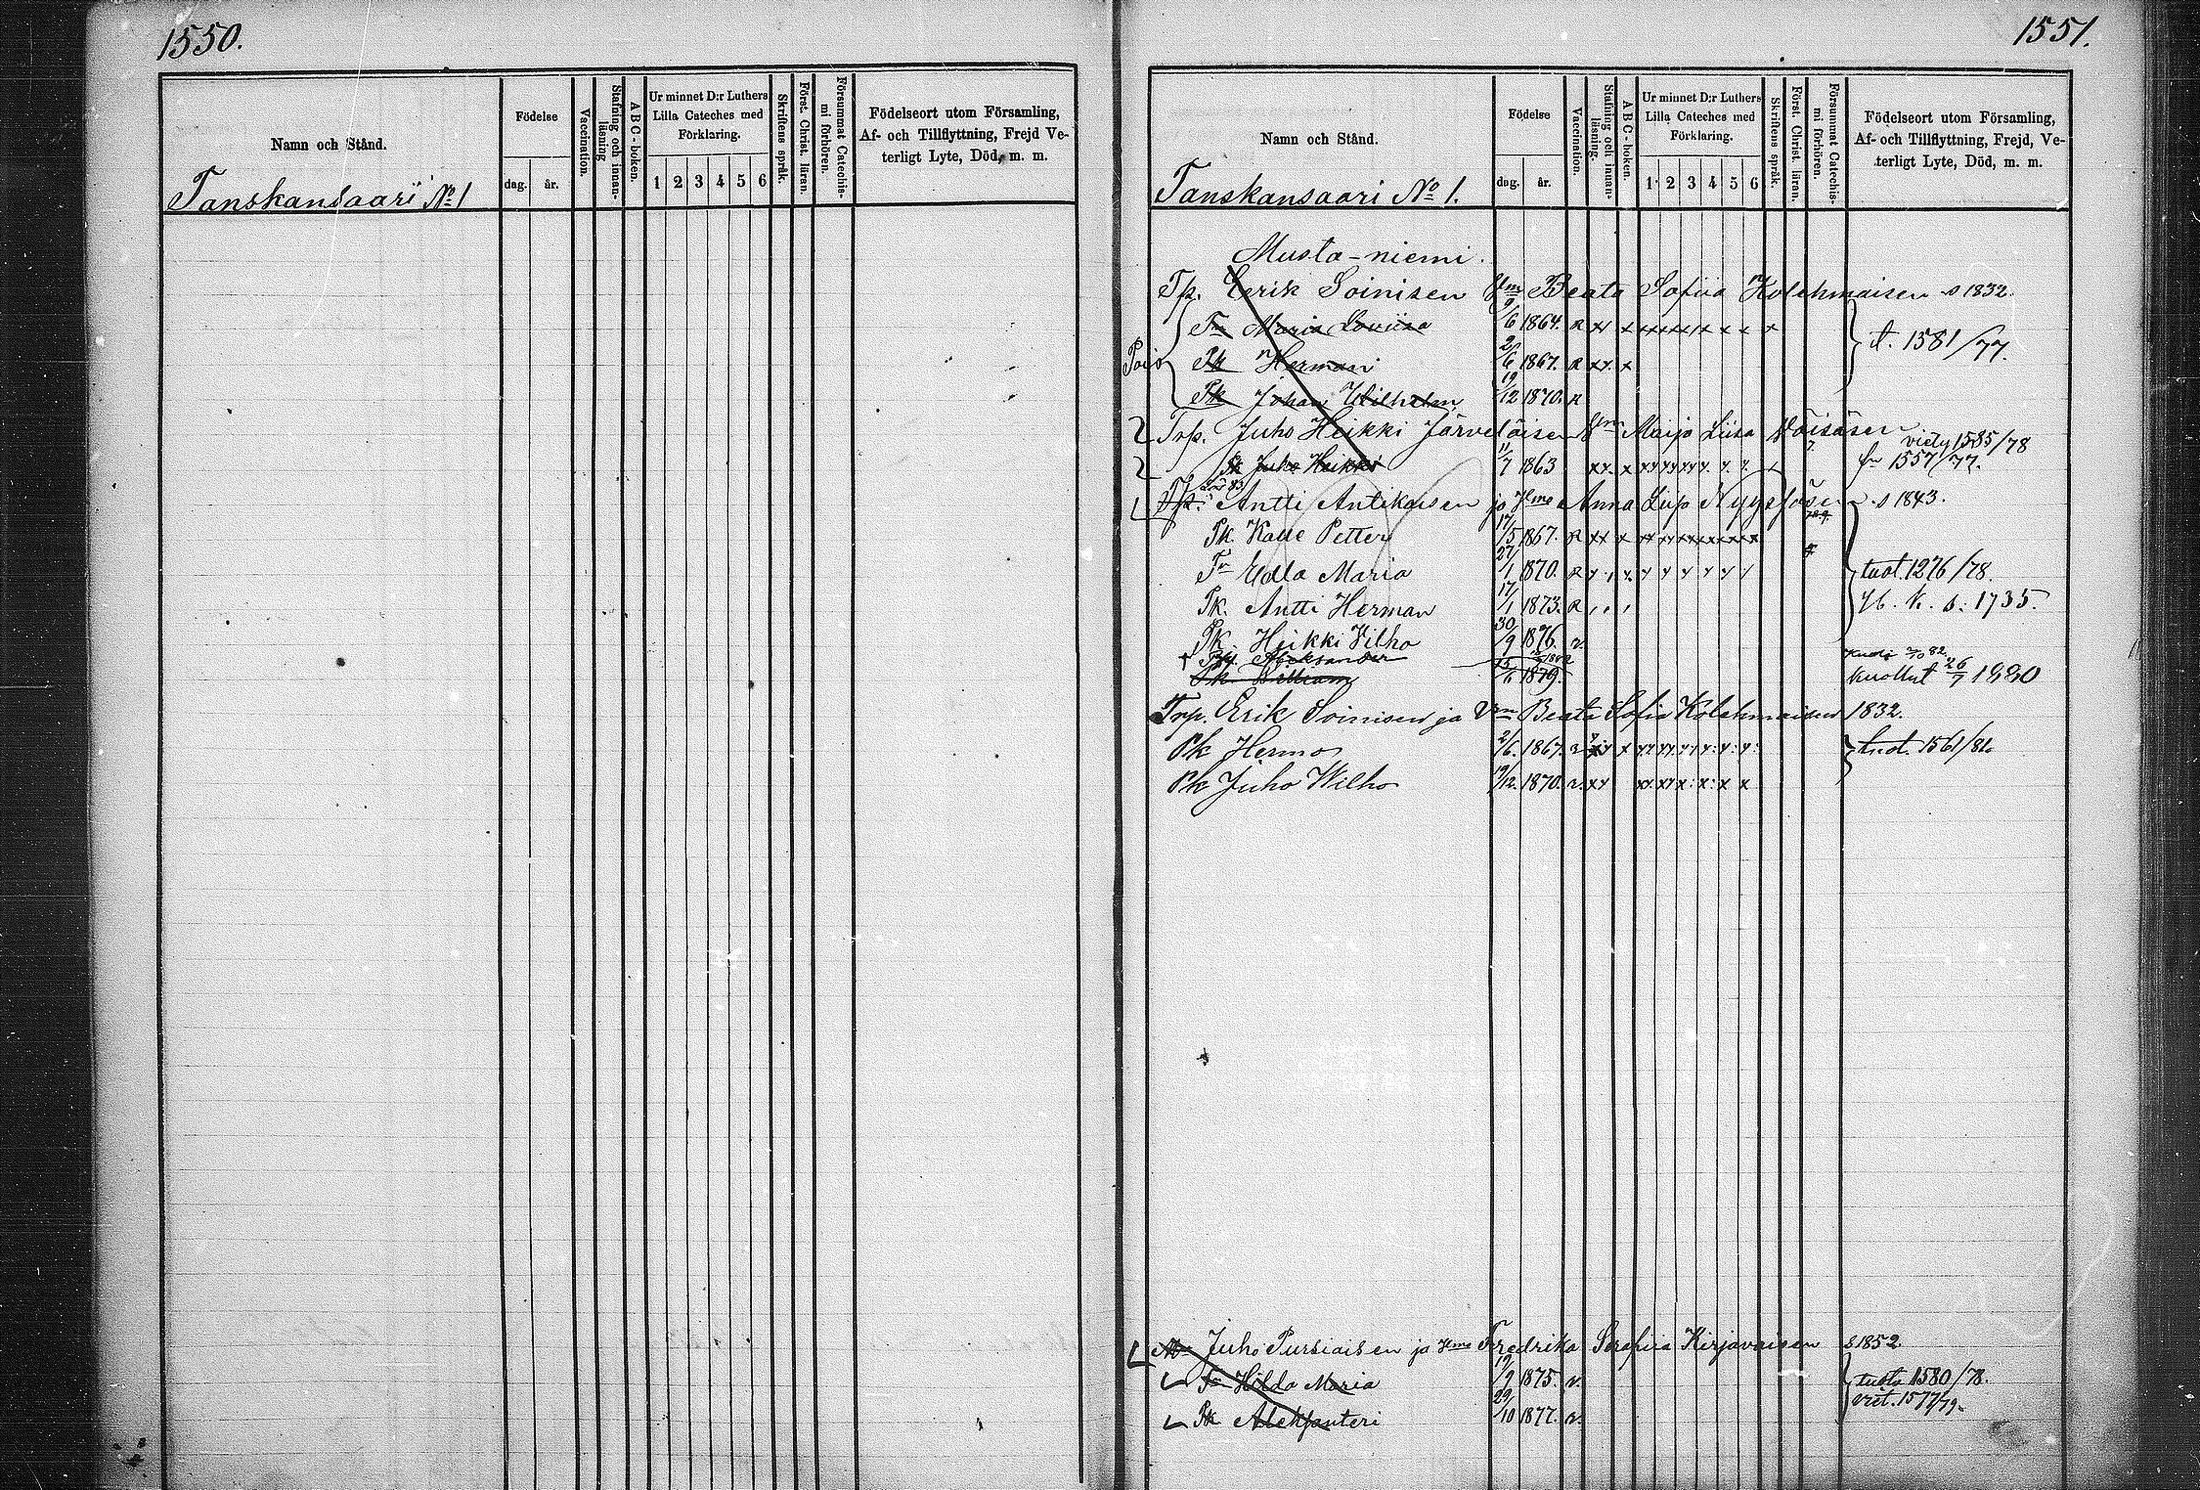 1550.
Namn och Stånd.
Födelse
dag. år.
Vaccination.
Stafning och innan-
läsning
ABC-boken.
Ur minnet D:r Luthers
Lilla Cateches med
Förklaring.
1 2 3 4 5 6
Skriftens språk.
Först. Christ. läran.
Försummat Catechis-
mi förhören.
Födelseort utom Församling,
Af- och Tillflyttning, Frejd Ve-
terligt Lyte, Död, m. m.
Tanskansaari No 1
1551.
Namn och Stånd.
Födelse
dag. år.
Vaccination.
Stafning och innan-
läsning.
ABC-boken.
Ur minnet D:r Luthers
Lilla Cateches med
Förklaring.
1 2 3 4 5 6
Skriftens språk.
Först. Christ. läran.
Försummat Catechis-
mi förhören.
Födelseort utom Församling,
Af- och Tillflyttning, Frejd, Ve-
terligt Lyte, Död, m. m.
Tanskansaari No 1.
Musta-niemi.
Tp. Eerik Soinisen Beata Sofiia Kolehmaisen s 1832.
Tr Maria Loviisa 9/6 1864. R
Pois
t. 1581/77.
Pk Hermani 2/6 1867. R
Pk Johan Wilhelm 19/12 1870. R
Trp. Juho Heikki Järveläisen Vm Maija Liisa Väisäsen
viety 1585/78
Pk Juho Heikki 11/7 1863 1557/77.
Antti Antikaisen ja Hmo Anna Liip Nyyssösen s 1843.
Pk Kalle Petter 17/5 1867. R
Tr Edla Maria 27/1 1870. R tuot. 1276/78.
Pk. Antti Herman 17/1 1873. R s: 1735.
Pk. Heikki Vilho 30/9 1876. v.
Aleksander 1882 82.
Pk. William 1879. kuollut 26/7 1880
Trp. Erik Soinisen ja Vm Beata Sofia Kolehmaisen 1832.
Pk Hermo 2/6. 1867. tuot. 1561/81.
Pk Juho Wilho 19/12. 1870. v.
Juho Pursiaisen ja Hmo Fredrika Serafiia Kirjavaisen s 1852.
Tr Hilda Maria 19/9 1875. v. tuotu 1580/78.
viet. 1577/79.
Pk Aleksanteri 29/10 1877. v.